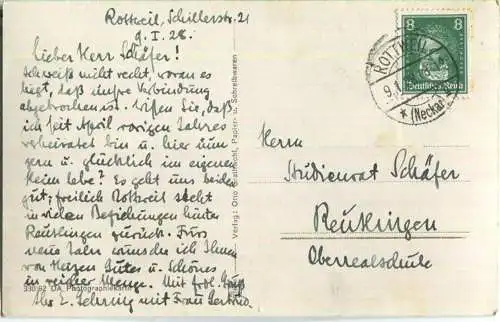 Rottweil, Schillerstr. 21
9. I. 28.
Lieber Herr Schäfer!
Ich weiß nicht recht, woran es
liegt, daß unsre Verbindung
abgebrochen ist. Wissen Sie, daß
ich seit April vorigen Jahres
verheiratet bin u. hier
gern u. glücklich im eigenen
Heim lebe? Es geht uns beiden
gut; freilich Rottweil steht
in vielen Beziehungen hinter
Reutlingen zurück. Fürs
neue Jahr wünsche ich Ihnen
von Herzen Gutes u. Schönes
in reicher Menge. Mit frdl. Gruß
Ihr E. mit Frau Gertrud.
330/92 DA Photographiekarte
Verlag: Otto Papier- u. Schreibwaren
8 8
Deutsches Reich
ROTTWEIL
9.1
* (Neckar)
Herrn
Studienrat Schäfer
Reutlingen
Oberrealschule